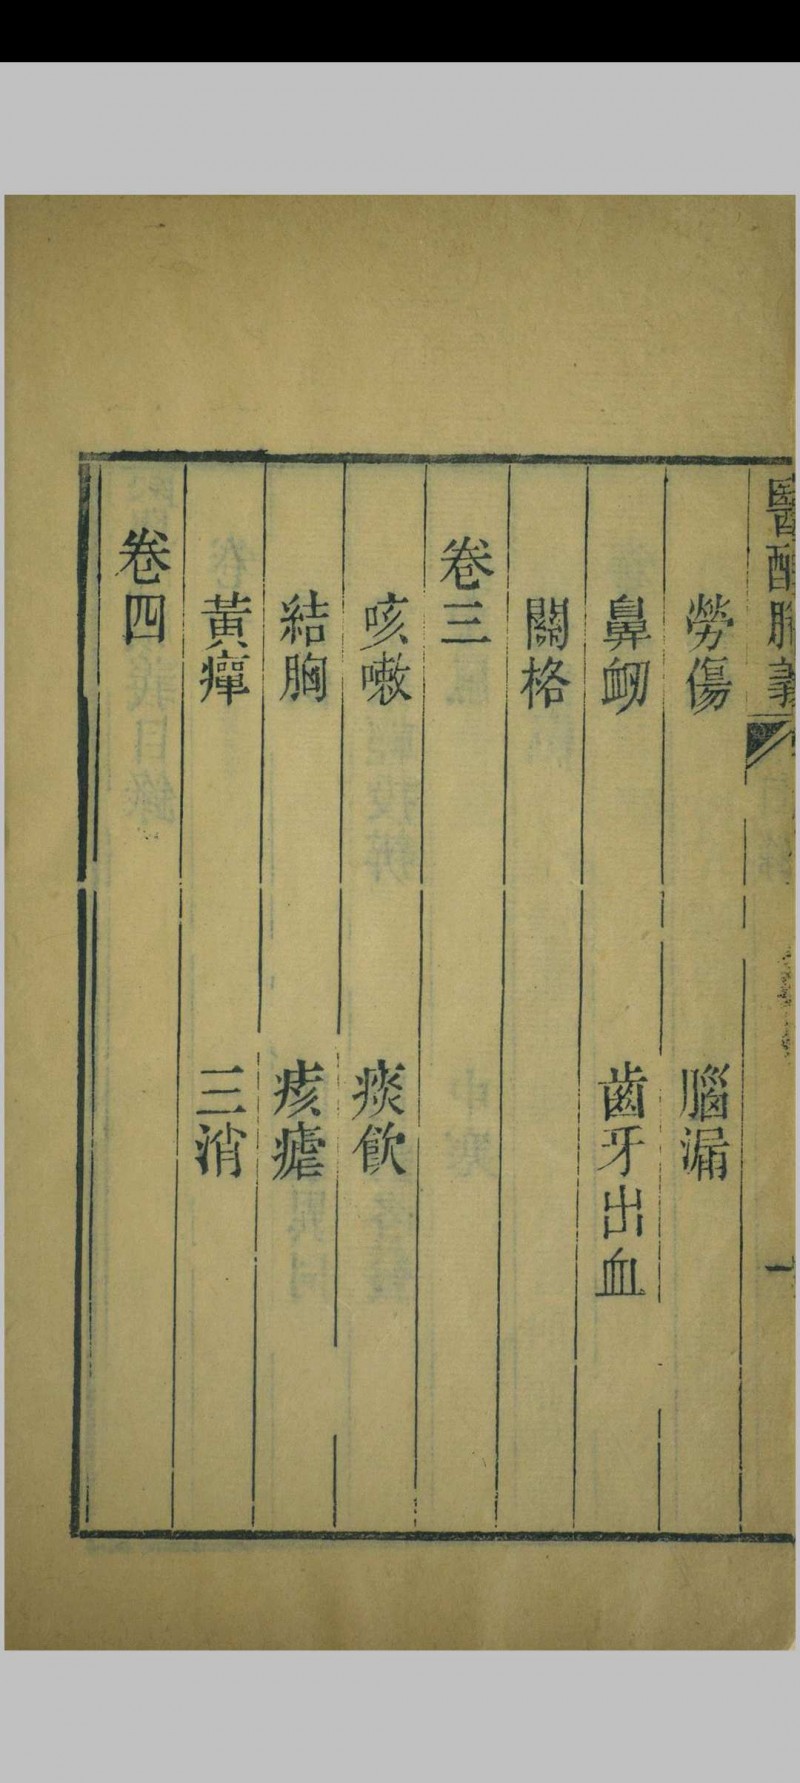 醫醇賸義 一
勞傷 腦漏
鼻衄 齒牙出血
關格
卷三
咳嗽 痰飲
結胸 痎瘧
黃癉 三消
卷四